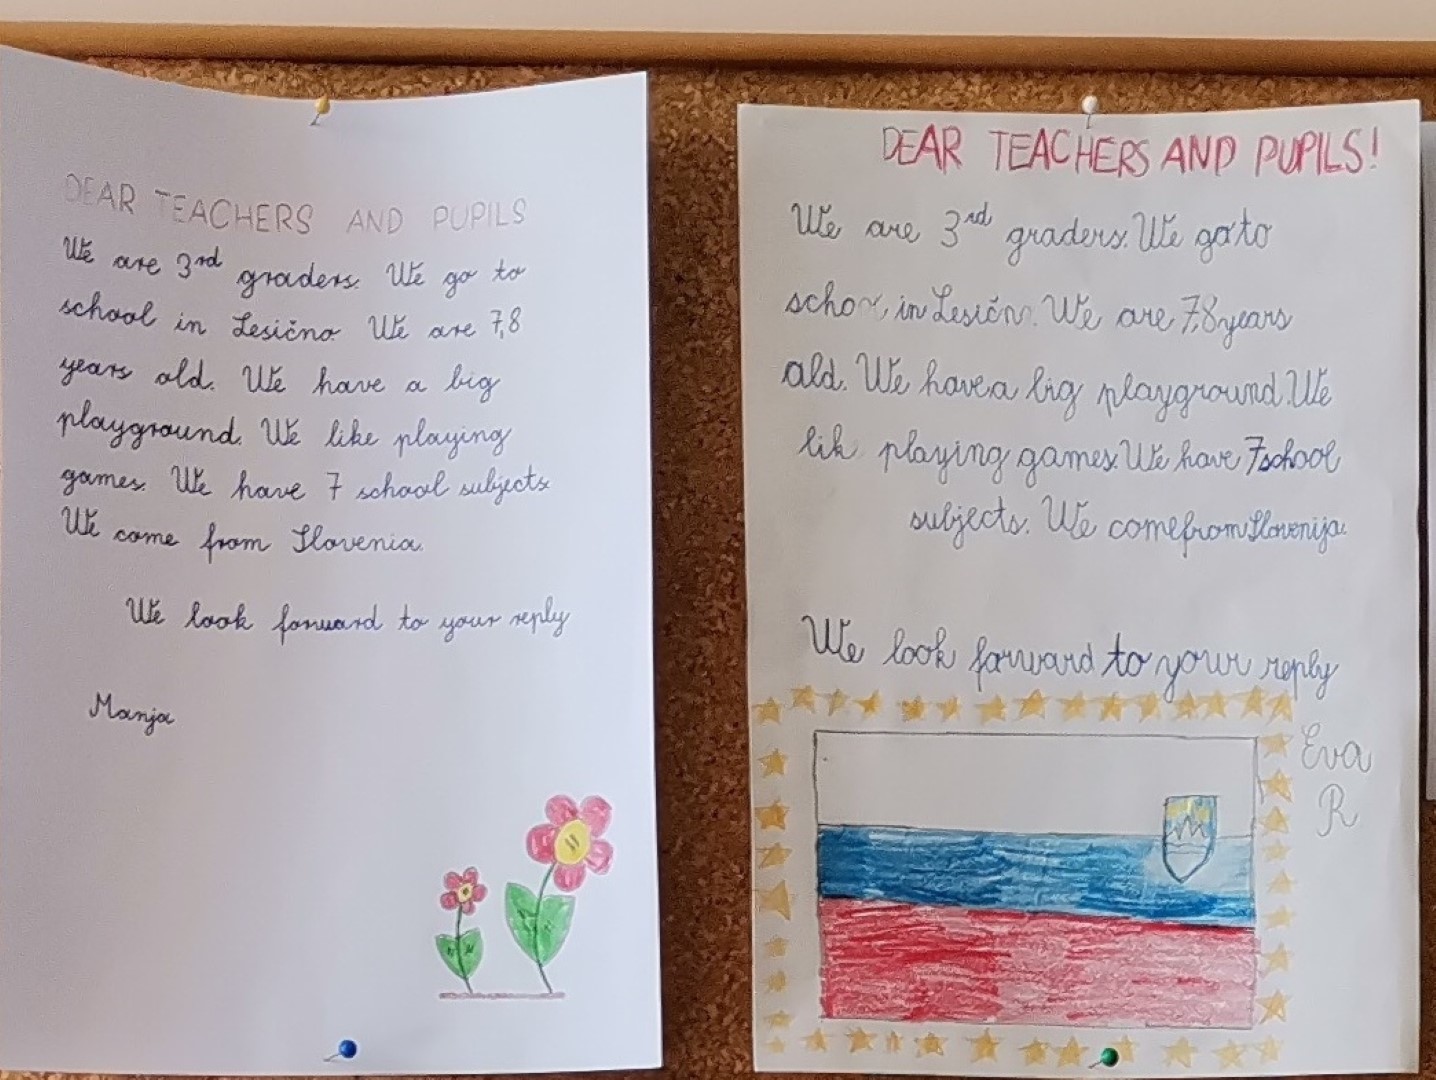 DEAR TEACHERS AND PUPILS
We are 3rd graders. We go to
school in Lesično. We are 7,8
years old. We have a big
playground. We like playing
games. We have 7 school subjects.
We come from Slovenia.
We look forward to your reply
Manja
DEAR TEACHERS AND PUPILS!
We are 3rd graders. We go to
in We are 7,8 years
old. We have a big playground. We
lik playing games. We have 7 school
subjects. We come from Slovenija.
We look forward to your reply
Eva
R